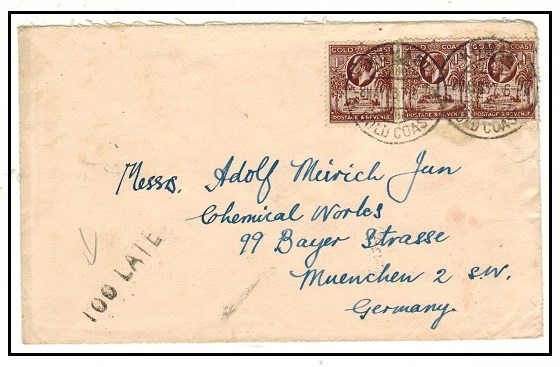 GOLD COAST GOLD COAST GOLD COAST
POSTAGE & REVENUE POSTAGE & REVENUE POSTAGE & REVENUE
GOLD COAST GOLD COAST
Messrs. Adolf Meirich Jun
Chemical Works
99 Bayer Strasse
Muenchen 2 S.W.
Germany.
TOO LATE